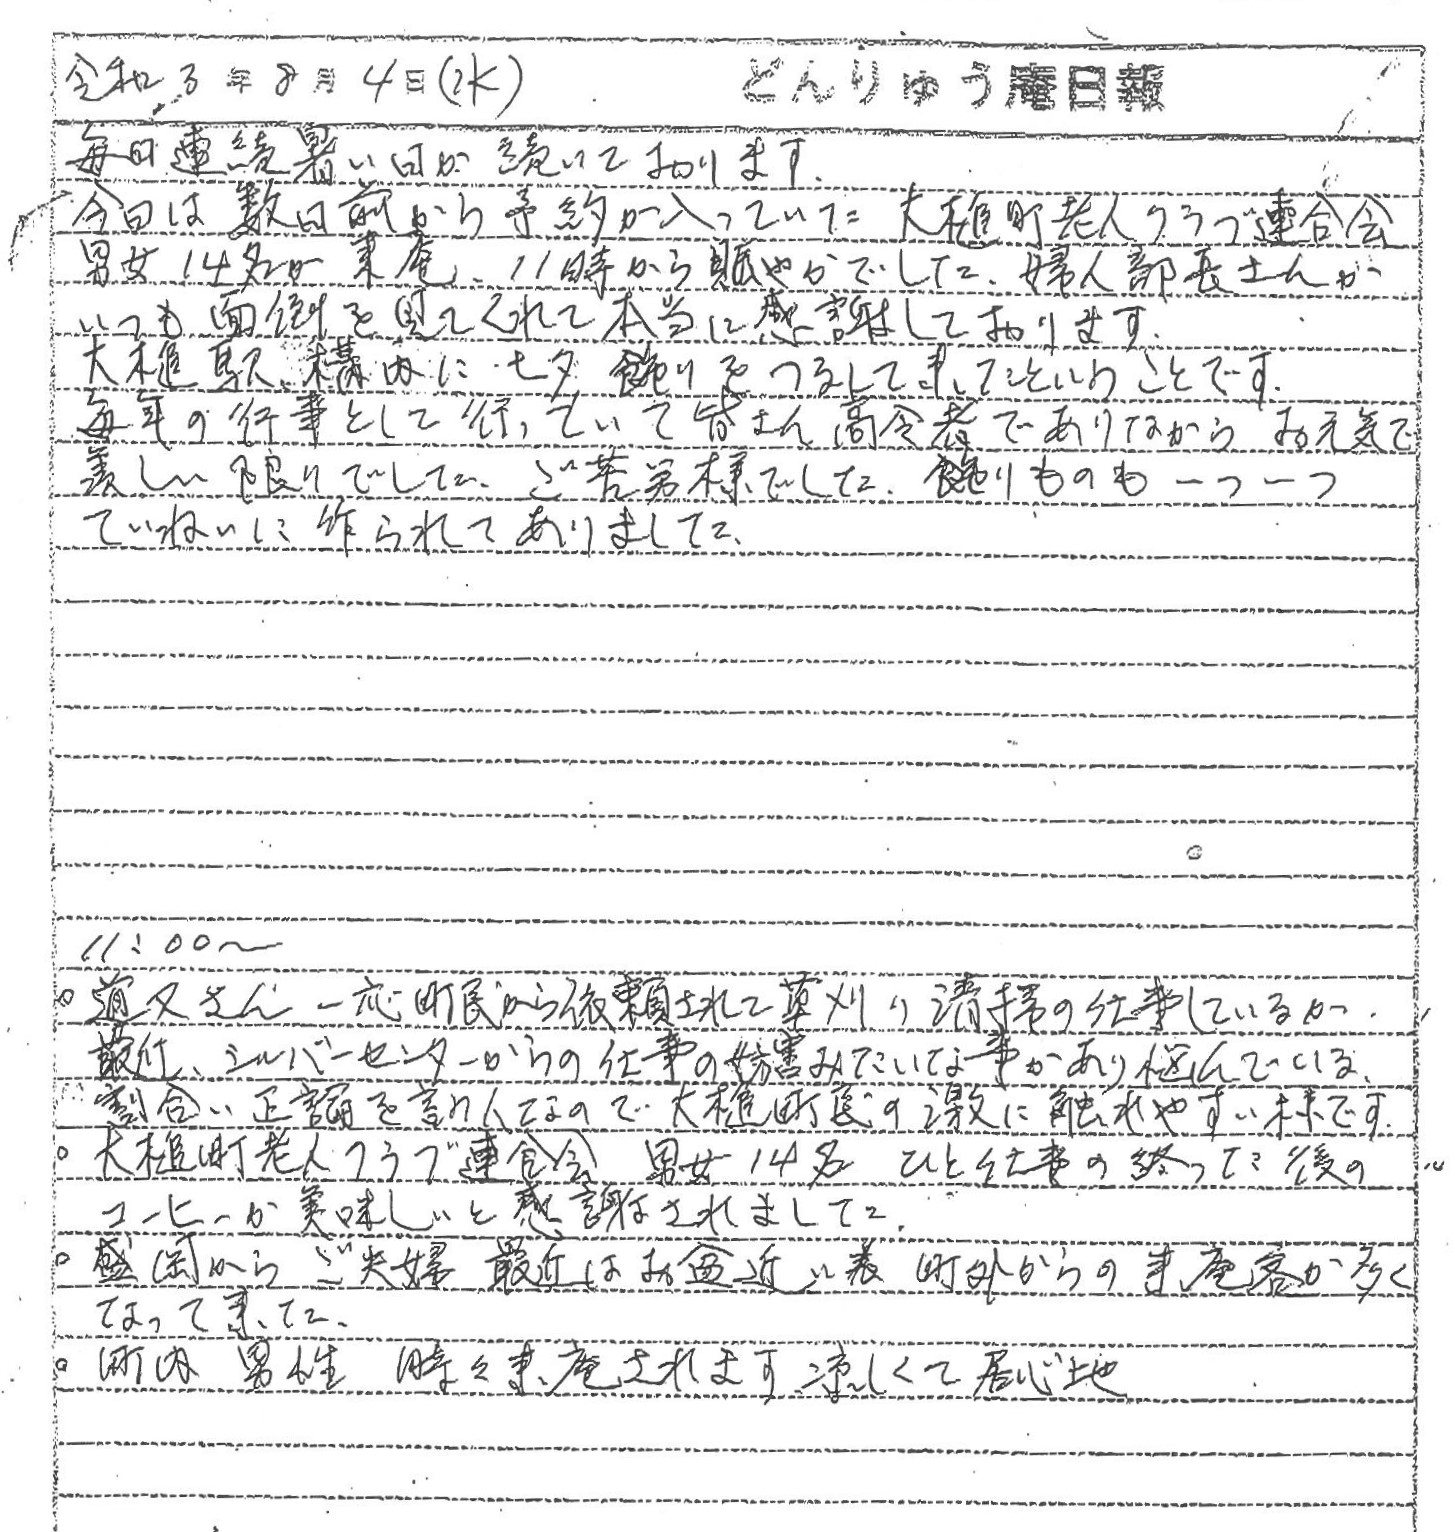 令和3年8月4日(水) どんりゅう庵日報
毎日連続暑い日が続いております.
今日は数日前から予約が入っていた 大槌町老人クラブ連合会
男女14名が来庵、11時から賑やかでした、婦人部長さんが
いつも面倒を見てくれて本当に感謝しております.
大槌駅構内に七夕飾りをつるして来たということです.
毎年の行事として行っていて皆さん高令者でありながらお元気で
羨しい限りでした、ご苦労様でした、飾りものも一つ一つ
ていねいに作られてありました、
11:00〜
○ 道又さん 一応町民から依頼されて草刈り清掃の仕事しているが.
最近、シルバーセンターからの仕事の妨害みたいな事があり悩んでいる、
割合い正論を言う人なので大槌町民の激に触れやすい様です.
○ 大槌町老人クラブ連合会 男女14名 ひと仕事の終った後の
コーヒーが美味しいと感謝されました.
○ 盛岡からご夫婦 最近はお盆近い為 町外からの来庵客が多く
なって来た、
○ 町内 男性 時々来庵されます 涼しくて居心地